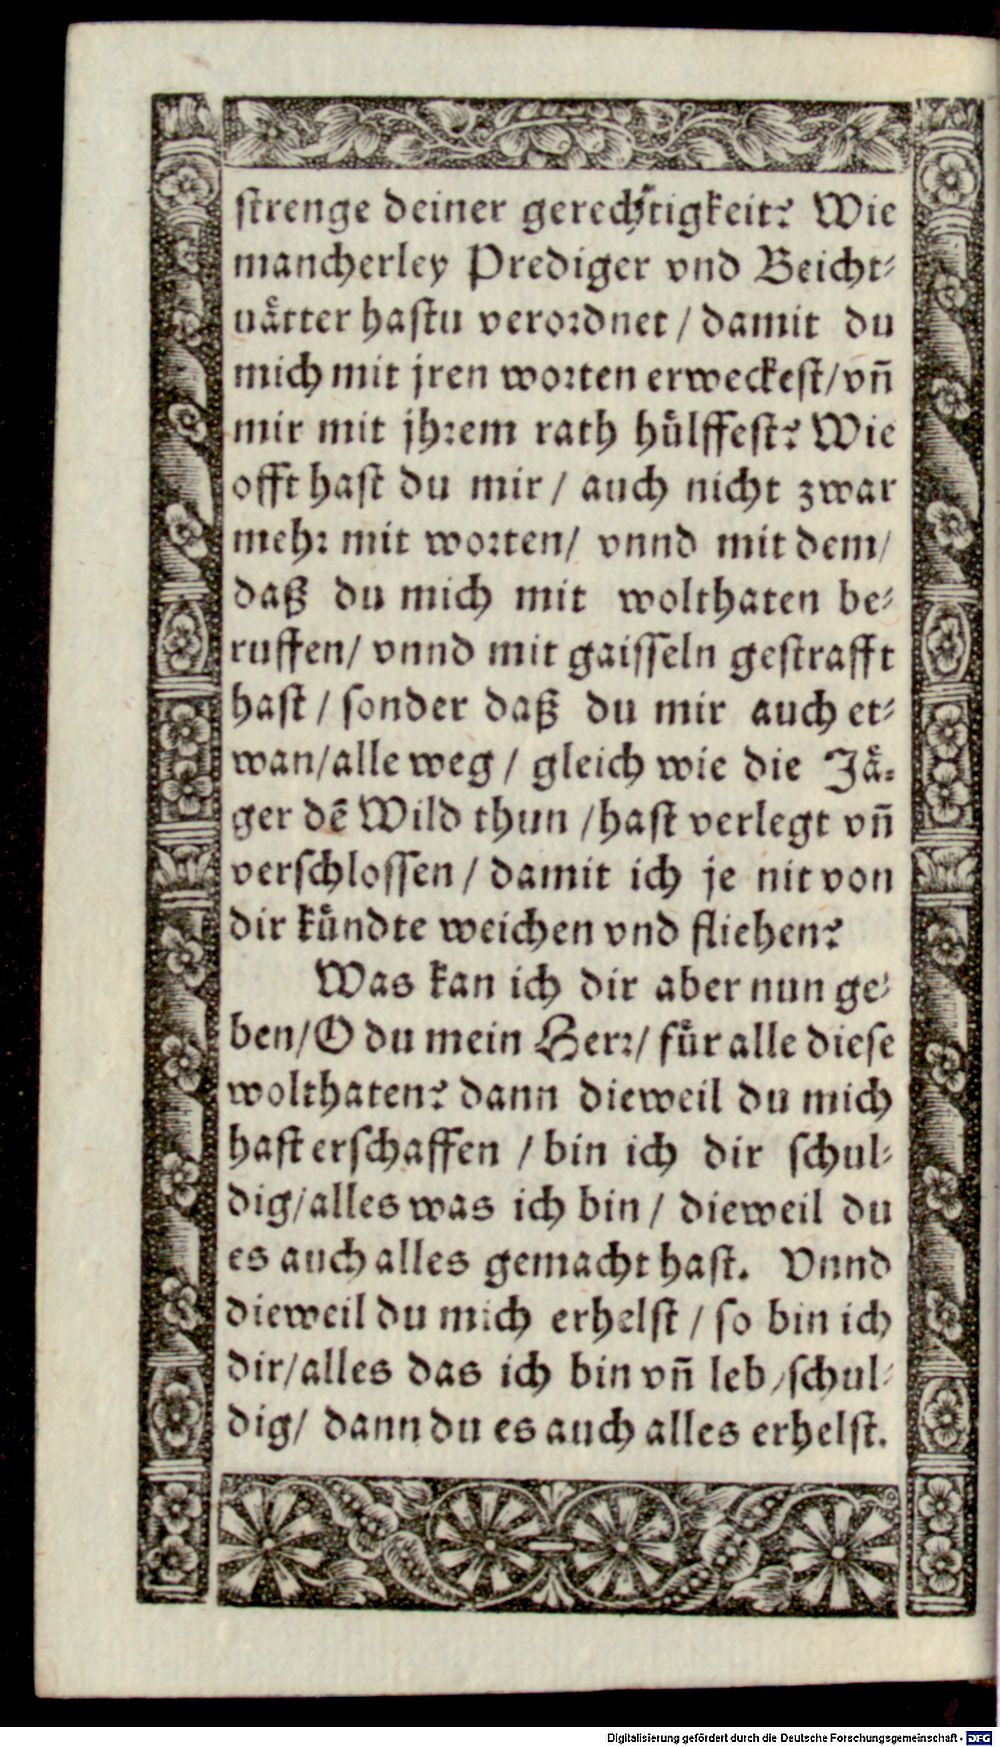 ſtrenge deiner gerechtigkeit? Wie
mancherley Prediger vnd Beicht⸗
uaͤtter haſtu verordnet / damit du
mich mit jren worten erweckeſt/ vñ
mir mit jhrem rath huͤlffeſt? Wie
offt haſt du mir / auch nicht zwar
mehr mit worten/ vnnd mit dem/
daß du mich mit wolthaten be⸗
ruffen/ vnnd mit gaiſſeln geſtrafft
haſt / ſonder daß du mir auch et⸗
wan/ alle weg / gleich wie die Jaͤ⸗
ger dẽ Wild thun / haſt verlegt vñ
verſchloſſen / damit ich je nit von
dir kuͤndte weichen vnd fliehen?
Was kan ich dir aber nun ge⸗
ben/ O du mein Herr/ fuͤr alle dieſe
wolthaten? dann dieweil du mich
haſt erſchaffen / bin ich dir ſchul⸗
dig/ alles was ich bin / dieweil du
es auch alles gemacht haſt. Vnnd
dieweil du mich erhelſt / ſo bin ich
dir/ alles das ich bin vñ leb/ ſchul⸗
dig/ dann du es auch alles erhelſt.
Digitalisierung gefördert durch die Deutsche Forschungsgemeinschaft - DFG